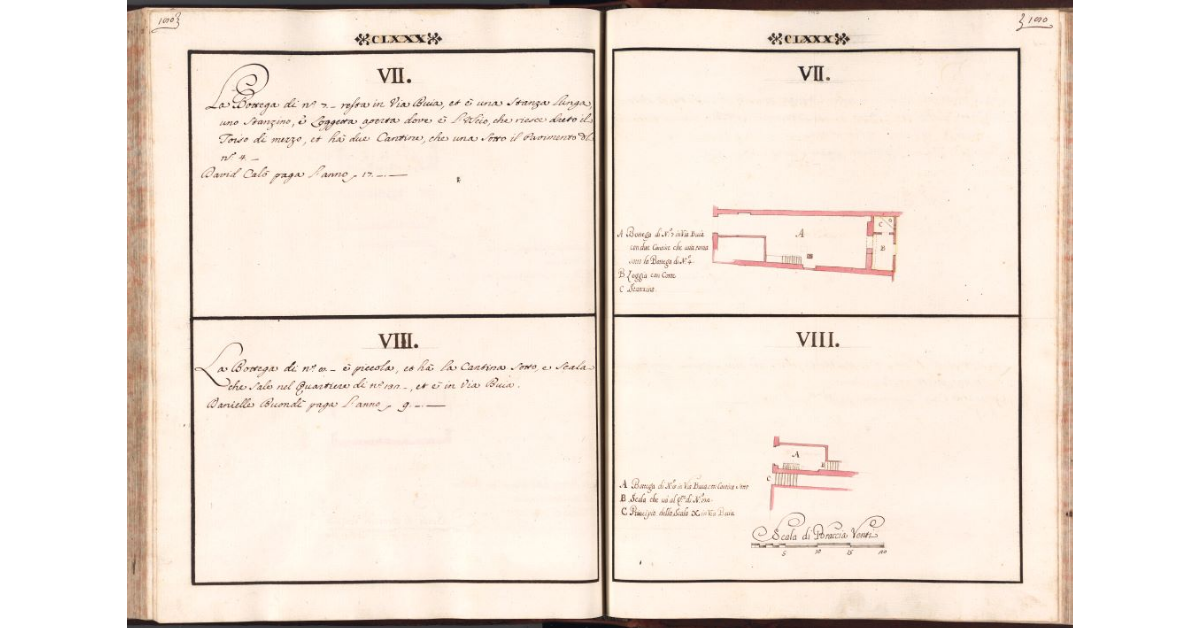 1010
CLXXX
VII.
La Bottega di nº 7 – resta in Via Buia, et è una Stanza lunga,
uno Stanzino, e Loggetta aperta dove è l'
che riesce
di mezzo, et hà due Cantine, che una sotto il Pavimento del
nº 4. –
David Calò paga l'anno 17. – –
VIII.
La Bottega di nº 8 – è piccola, et hà la Cantina sotto, e Scala
che sale nel Quartiere di nº
, et è in Via Buia.
Danielle Buondì paga l'anno 9. – –
1010
CLXXX
VII.
A
C
B
A Bottega di Nº 7 in Via Buia
con due Cantine che una resta
sotto la Bottega di Nº 4
B Loggia con Corte
C Stanzino
VIII.
A
B
C
A Bottega di Nº 8 in Via Buia con Cantina sotto
B Scala che và al Qre di Nº
C Principio della Scala
in Via Buia
Scala di Braccia Venti
5 10 15 20